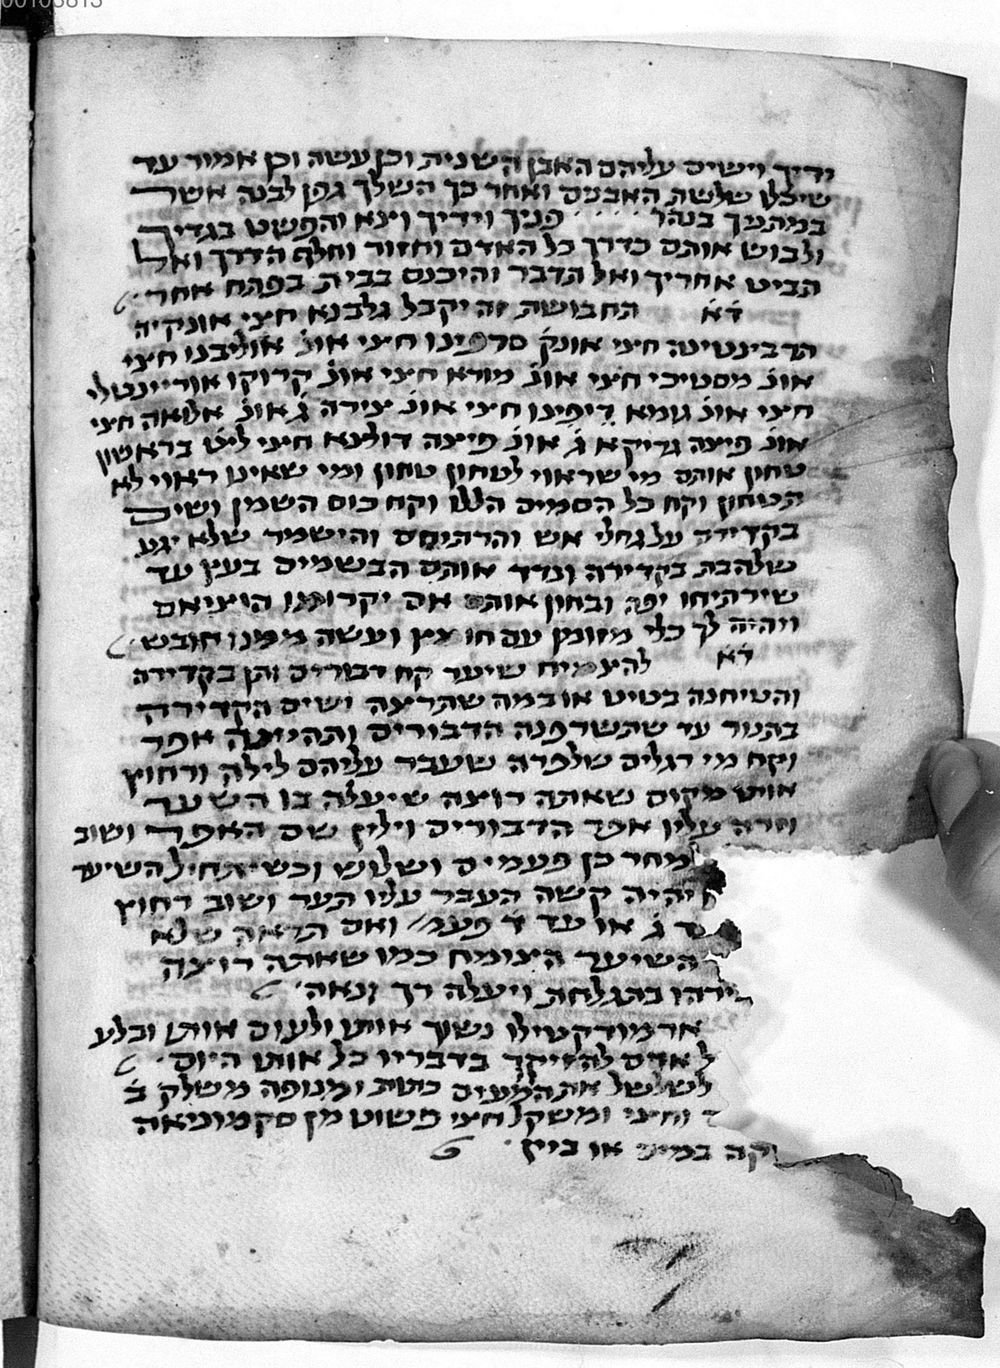 00103813
ידיך וישים עליהם האבן השנית וכן עשה וכן אמור עד
שיכלו שלשת האבנים ואחר כך השלך גפן לבנה אשר
במתניך בנהר פניך וידיך וצא והפשט בגדיך
ולבוש אותם כדרך כל האדם וחזור וחלף הדרך ואל
תביט אחריך ואל תדבר והיכנס בבית בפתח אחר
ד״א תחבושת זה יקבל גלבנא חצי אונקיה
הרבינטינה חצי אונק׳ חצי אונ׳ אוליבנו חצי
אונ׳ מסטיכי חצי אונ׳ מורא חצי אונ׳ קרוקו אוריינטלי
חצי אונ׳ גומא חצי אונ׳ צירה ג׳ אונ׳ אלואה חצי
אונ׳ פיצה גריקא ג׳ אונ׳ פיצה חצי ליט׳ בראשון
טחון אותם מי שראוי לטחון טחון ומי שאינו ראוי לא
תטחון וקח כל הסמים הללו וקח כוס השמן ושים
בקדירה על גחלי אש והרתיחם והישמר שלא יגע
שלהבת בקדירה ונדד אותם הבשמים בעץ עד
שירתיחו יפה ובחון אותם אם יקרושו הוציאם
ויהיה לך כלי מזומן עם חומץ ועשה ממנו חובש
ד״א להצמיח שיער קח דבורים ותן בקדירה
והטיחנה בטיט או במה שתרצה ושים הקדירה
בתנור עד שתשרפנה הדבורים ותהיינה אפר
וקח מי רגלים שלפרה שעבר עליהם לילה ורחוץ
אותו מקום שאתה רוצה שיעלה בו השער
וזרה עליו אפר הדבורים וילין שם האפר ושוב
למחר כן פעמים ושלוש וכשיתחיל השיער
יהיה קשה העבר עליו תער ושוב רחוץ
ג׳ או עד ד׳ פעמ׳ ואם תראה שלא
השיער הצומח כמו שאתה רוצה
בתגלחת ויעלה רך ונאה
נשוך אותו ולעוס אותו ובלע
אדם להזיקך בדבריו כל אותו היום
לשלשל את המעים כתות ומנופה משלק׳ ב׳
וחצי ומשקל חצי פשוט מן סקמוניאה
במים או ביין